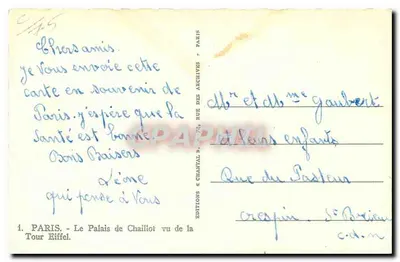 Chers amis
je vous envoie cette
carte en souvenir de
Paris. j'espère que la
santé est bonne
Bons Baisers
qui pense à Vous
1. PARIS. - Le Palais de Chaillot vu de la
Tour Eiffel.
EDITIONS « CHANTAL », RUE DES ARCHIVES - PARIS
Mr et Mme Gaubert
et leurs enfants
Rue du Pasteur
crespin. St Brieuc
c-d-n